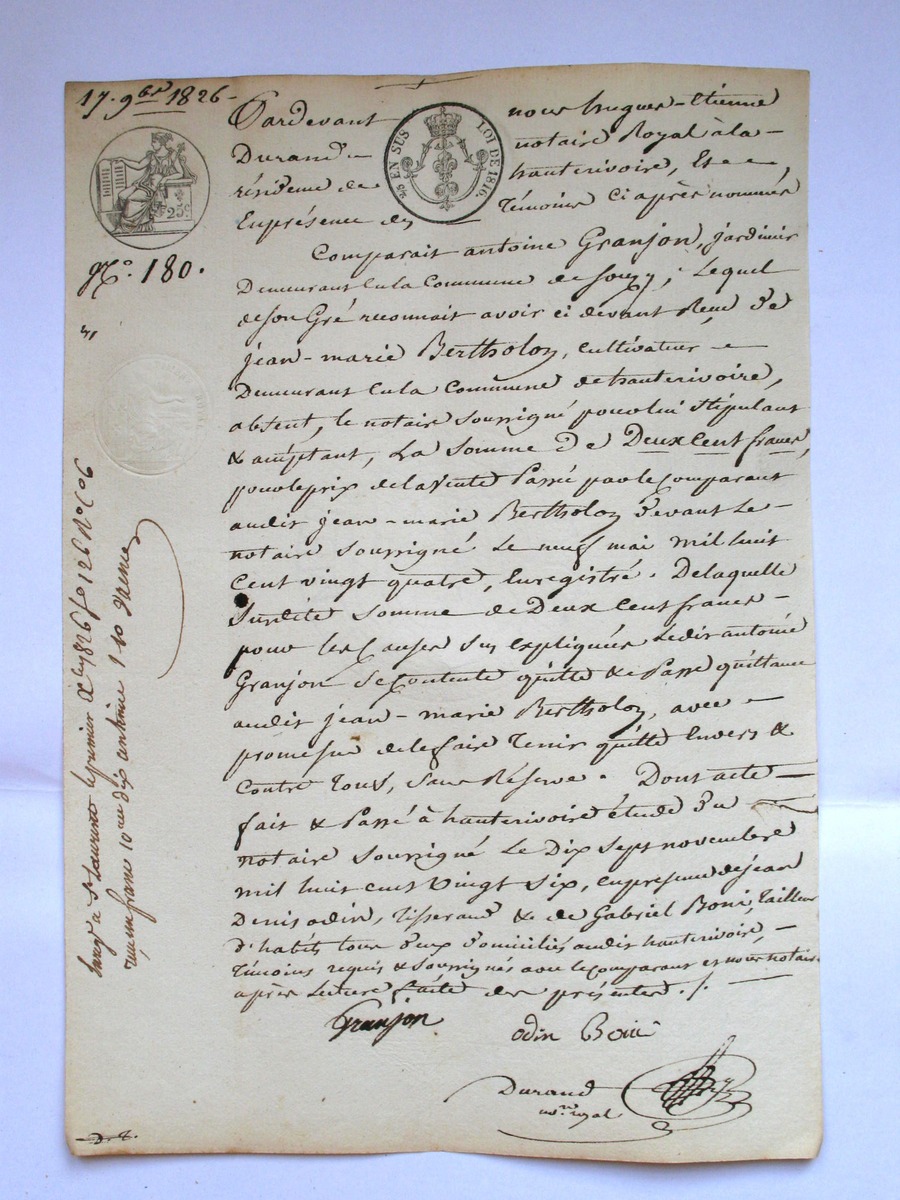 17. 9bre 1826 -
Pardevant nous hugues-Etienne
Durand - notaire Royal à la -
résidence de hauterivoire, Et -
En présence des témoins Ci après nommés
25 EN SUS LOI DE 1816.
25c
No. 180.
Comparait antoine Granjon, jardinier
Demeurant En la Commune de Souzy; Lequel
de son Gré reconnait avoir ci devant Reçu De
jean-marie Bertholon, Cultivateur -
Demeurant En la Commune de hauterivoire,
absent, le notaire soussigné pour lui stipulant
& acceptant, La Somme De Deux Cent francs,
pour le prix de la Vente Passé par le Comparant
audit jean-marie Bertholon Devant Le -
notaire Soussigné Le neuf mai mil huit
Cent vingt quatre, Enregistré. De laquelle
Surdite Somme de Deux Cent francs -
pour les Causes Sus Expliquées Ledit antoine
Granjon Se Contente quitte & Passe quittance
audit jean-marie Bertholon, avec -
promesse de le faire Tenir quitte Envers &
Contre Tous, Sans Réserve. Dont acte -
fait & Passé à hauterivoire étude Du
notaire Soussigné Le Dix Sept novembre
mil huit Cent Vingt Six, En présence de jean
Denis odin, Tisserand & de Gabriel Boni, Tailleur
D'habits tous Deux Domiciliés audit hauterivoire, -
Témoins requis & Soussignés avec le Comparant et nous notaire
après Lecture faite des présentes ./. -
Granjon
odin Boni
Durand
nre royal
Enregé a St Laurent le premier Xbre 1826 fo 126
reçu un franc 10 cmes
D. T.